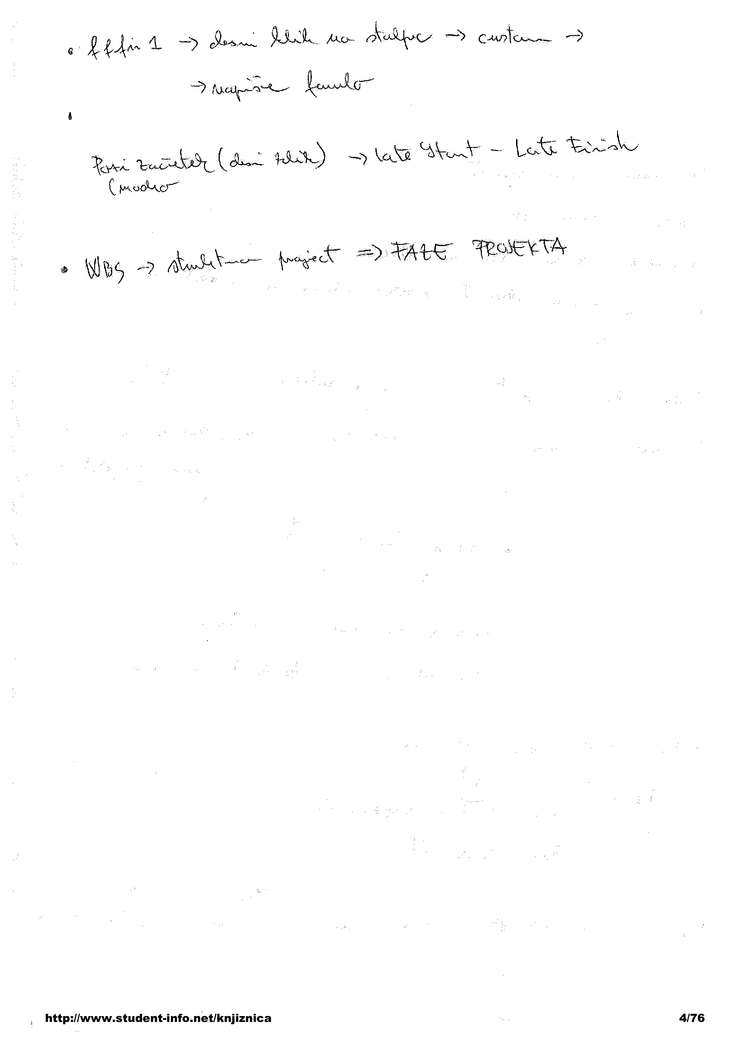 → desni klik na stolpec → custom →
→ napiše formulo
Pozni začetek (desni klik) → Late Start - Late Finish
(modro
• WBS → struktura project => FAZE PROJEKTA
http://www.student-info.net/knjiznica
4/76